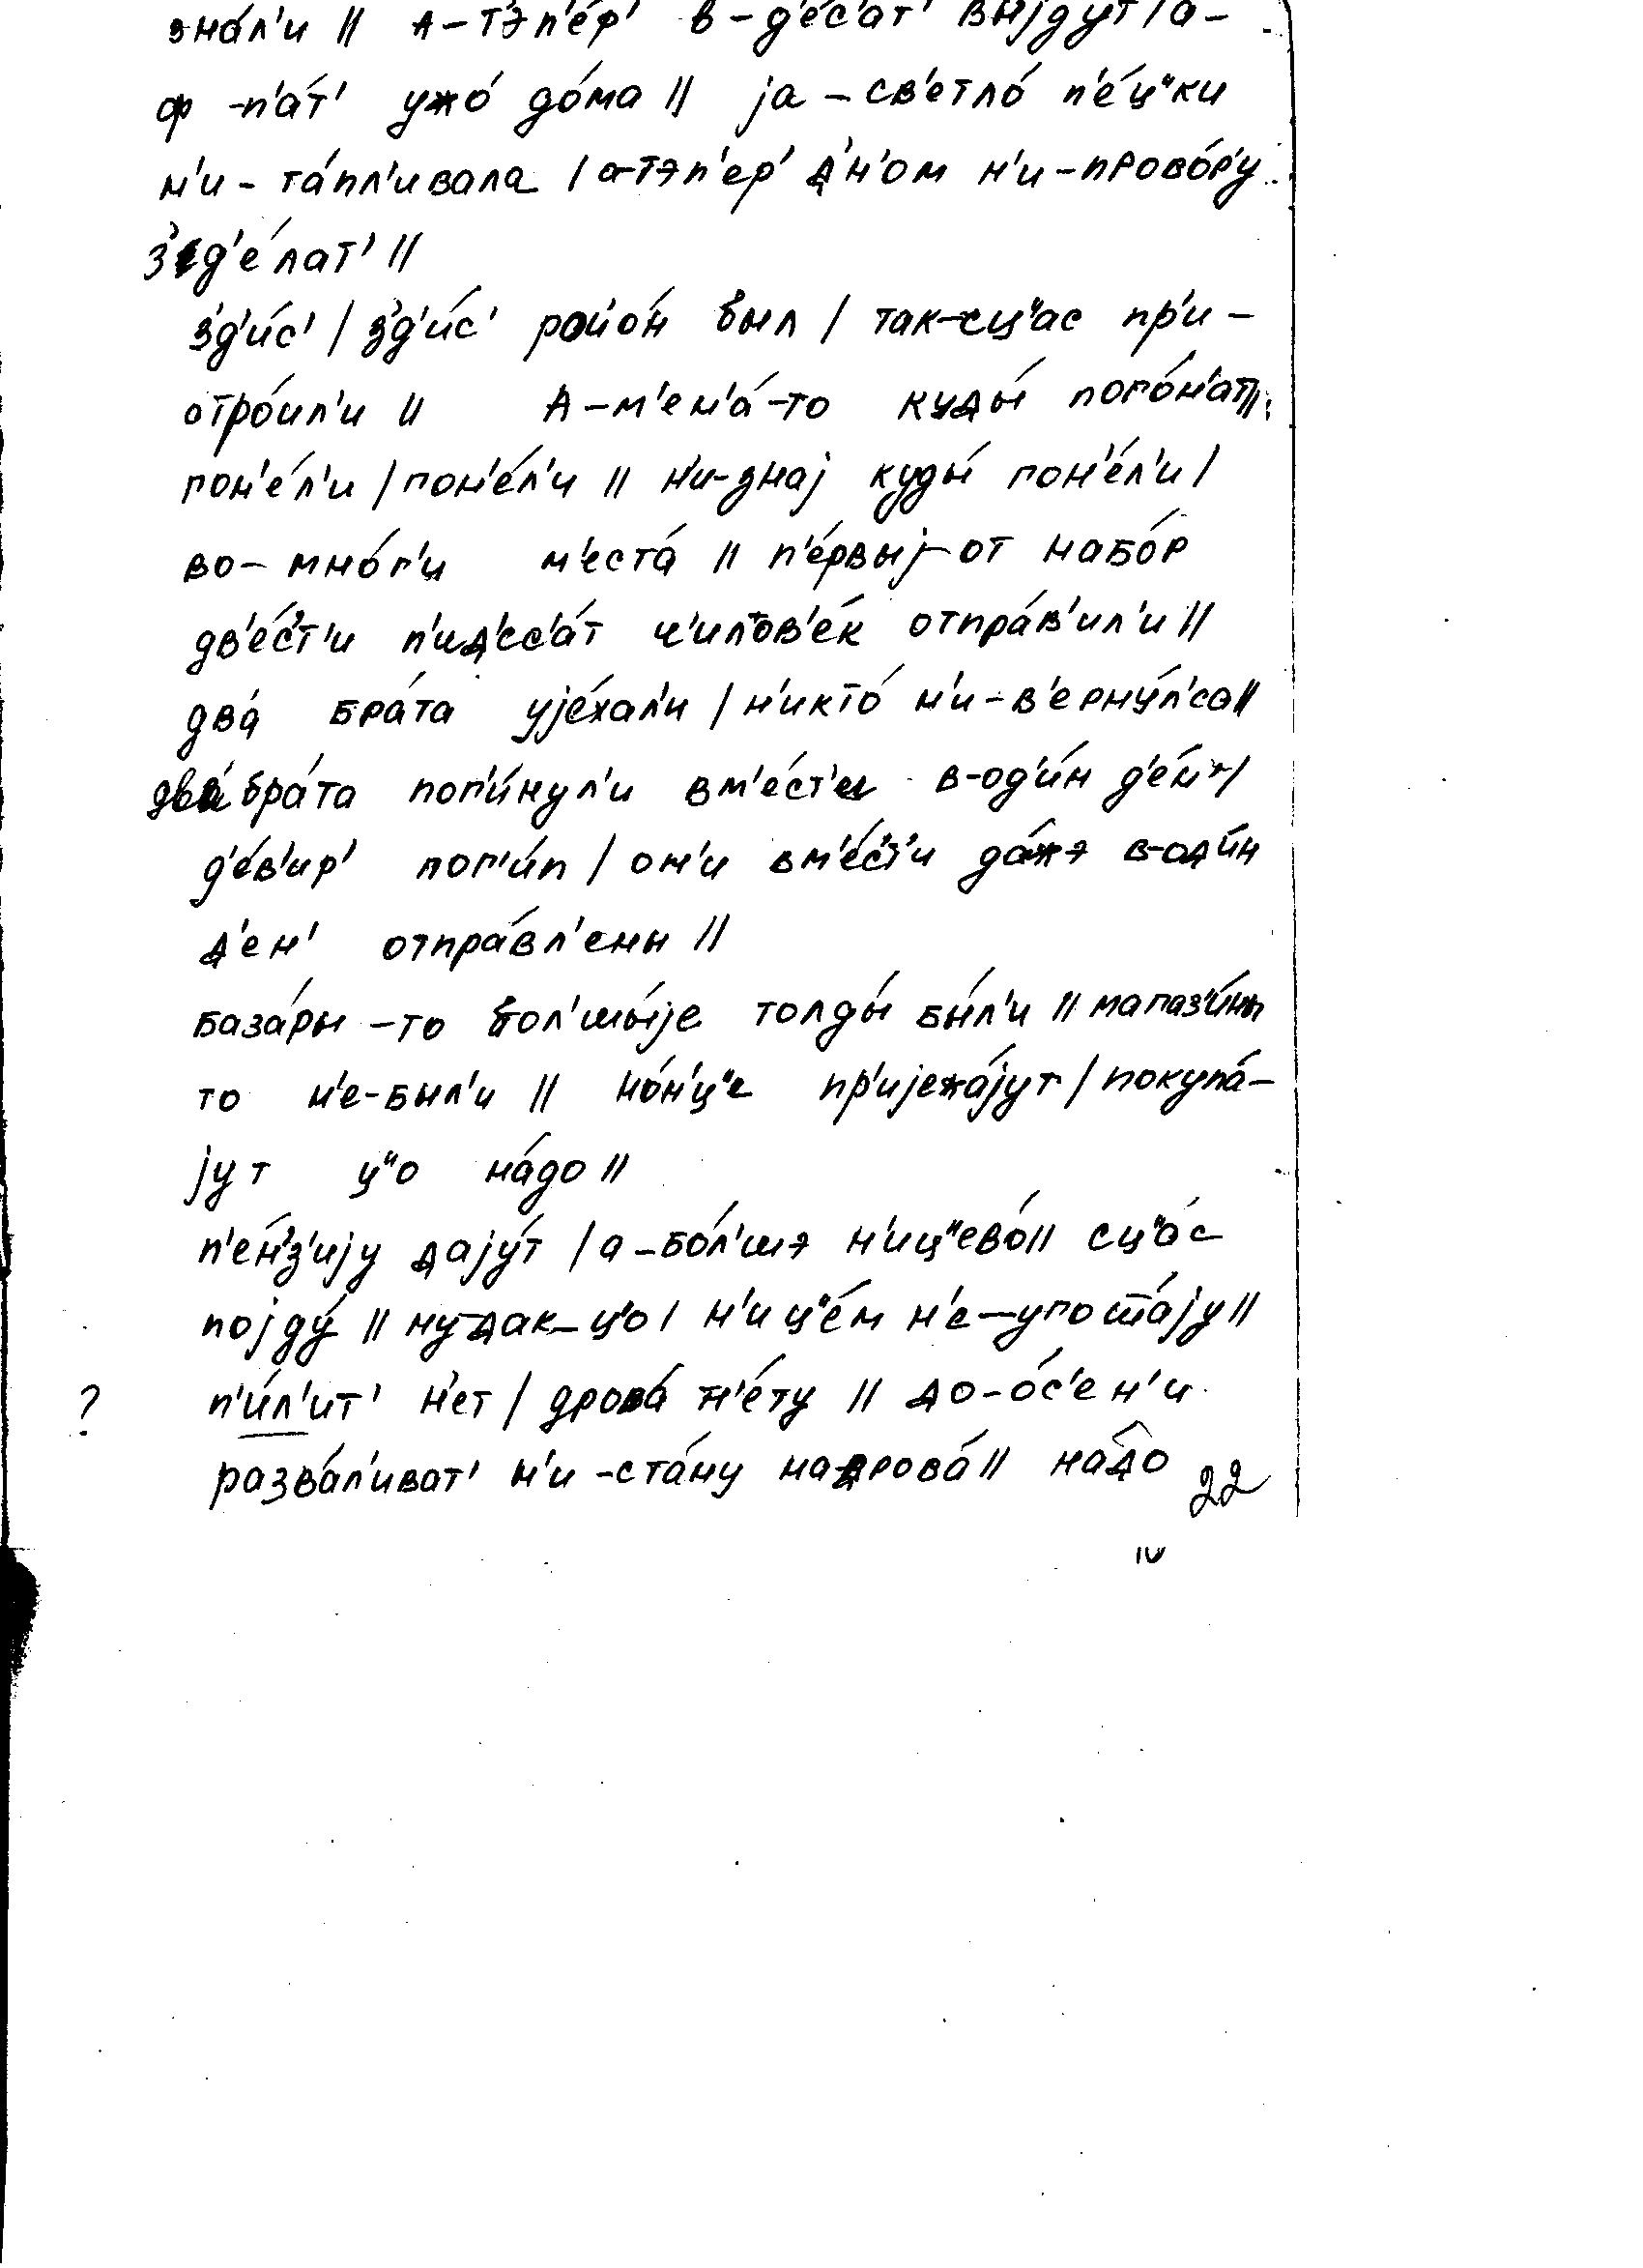 зна́л'и // а-тэп'е́р' в-д'е́с'ат' выjдут / а-
ф-п'а́т' ужо́ до́ма // jа-св'етло́ п'е́ц"ки
н'и-та́пл'ивала / а-тэп'ер' д'н'ом н'и-прово́р'у
з'д'е́лат' //
з'д'и́с' / з'д'и́с' роио́н был / так-сц"ас пр'и-
стро́ил'и // а-м'ен'а́-то куды́ пого́н'ат //
гон'е́л'и / гон'е́л'и // н'и-знаj куды́ гон'е́л'и /
во-мно́г'и м'еста́ // п'е́рвыj-от набо́р
дв'е́с'т'и п'ид'ес'а́т ч'илов'е́к отпра́в'ил'и //
два́ бра́та уjе́хал'и / н'икто́ н'и-в'ерну́л'са //
два́ бра́та пог'и́нул'и вм'е́ст'и в-од'и́н д'е́н' /
д'е́в'ир' пог'и́п / он'и вм'е́с'т'и да́жэ в-од'и́н
д'ен' отпра́вл'ены //
база́ры-то бол'шы́jе толды́ бы́л'и // магаз'и́ны
то н'е-был'и // но́н'ц"е пр'иjежа́jут / покупа́-
jут ц"о на́до //
п'е́н'з'иjу даjу́т / а-бо́л'шэ н'иц"ево́ // сц"а́с
поjду́ // ну-дак-ц"о / н'иц"е́м н'е-угошта́jу //
? п'и́л'ит' н'ет / дрова́ н'е́ту // до-о́с'ен'и
разва́л'иват' н'и-ста́ну на-дрова́ // на́до
22
IV